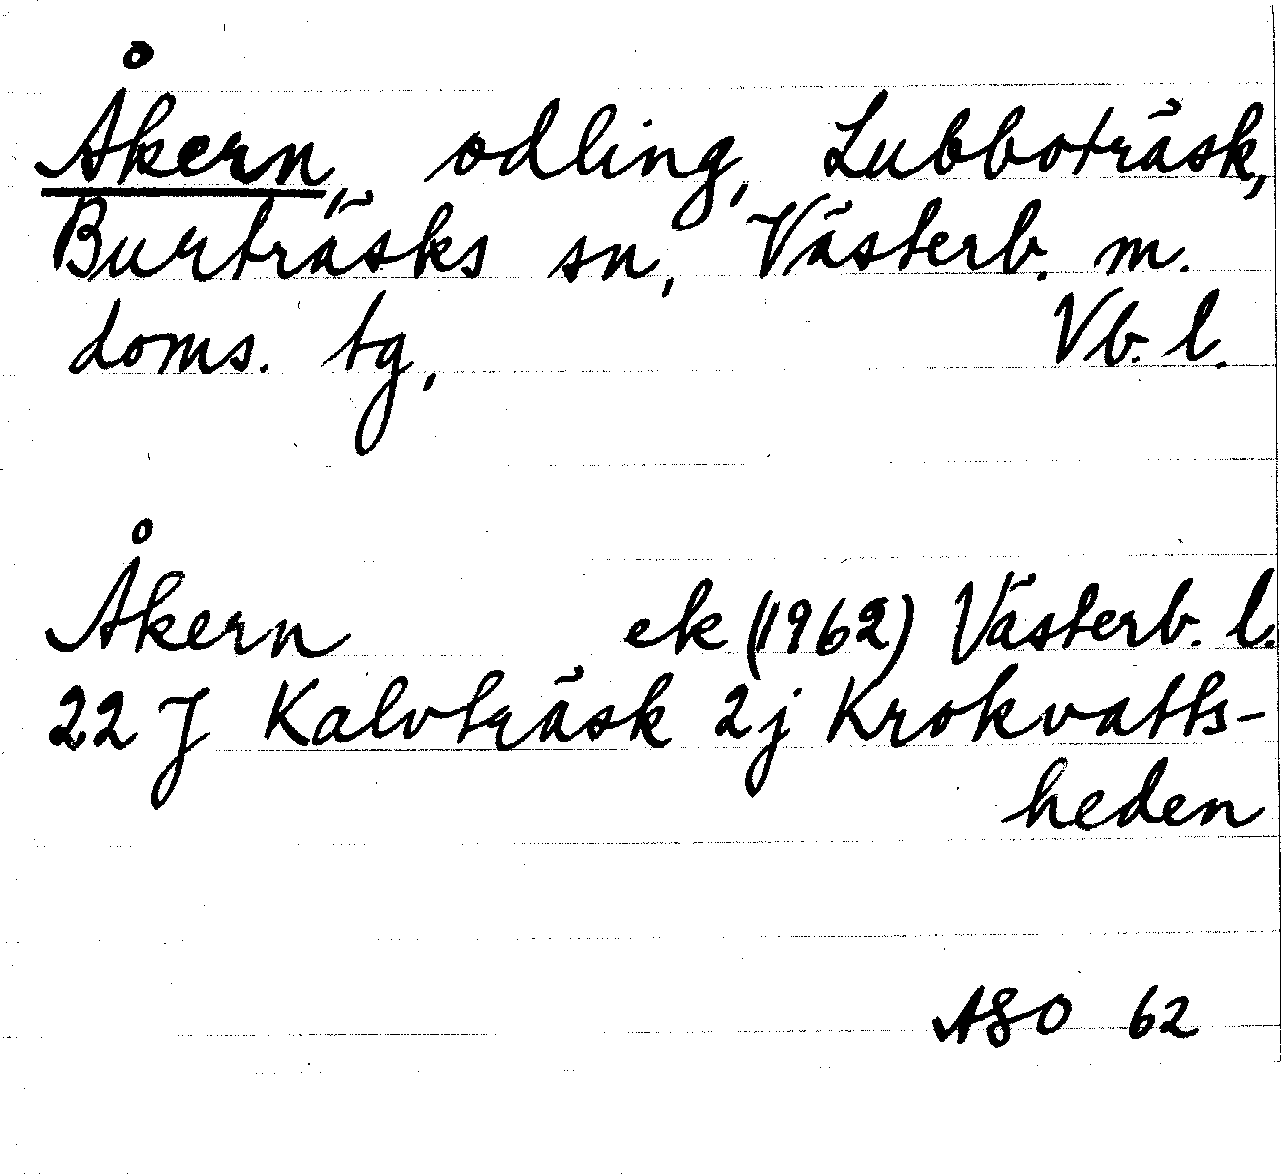 Åkern, odling, Lubboträsk,
Burträsks sn, Västerb. m.
doms. tg, Vb. l.
Åkern ek (1962) Västerb. l.
22 J Kalvträsk 2j Krokvatts-
heden
ASO 62